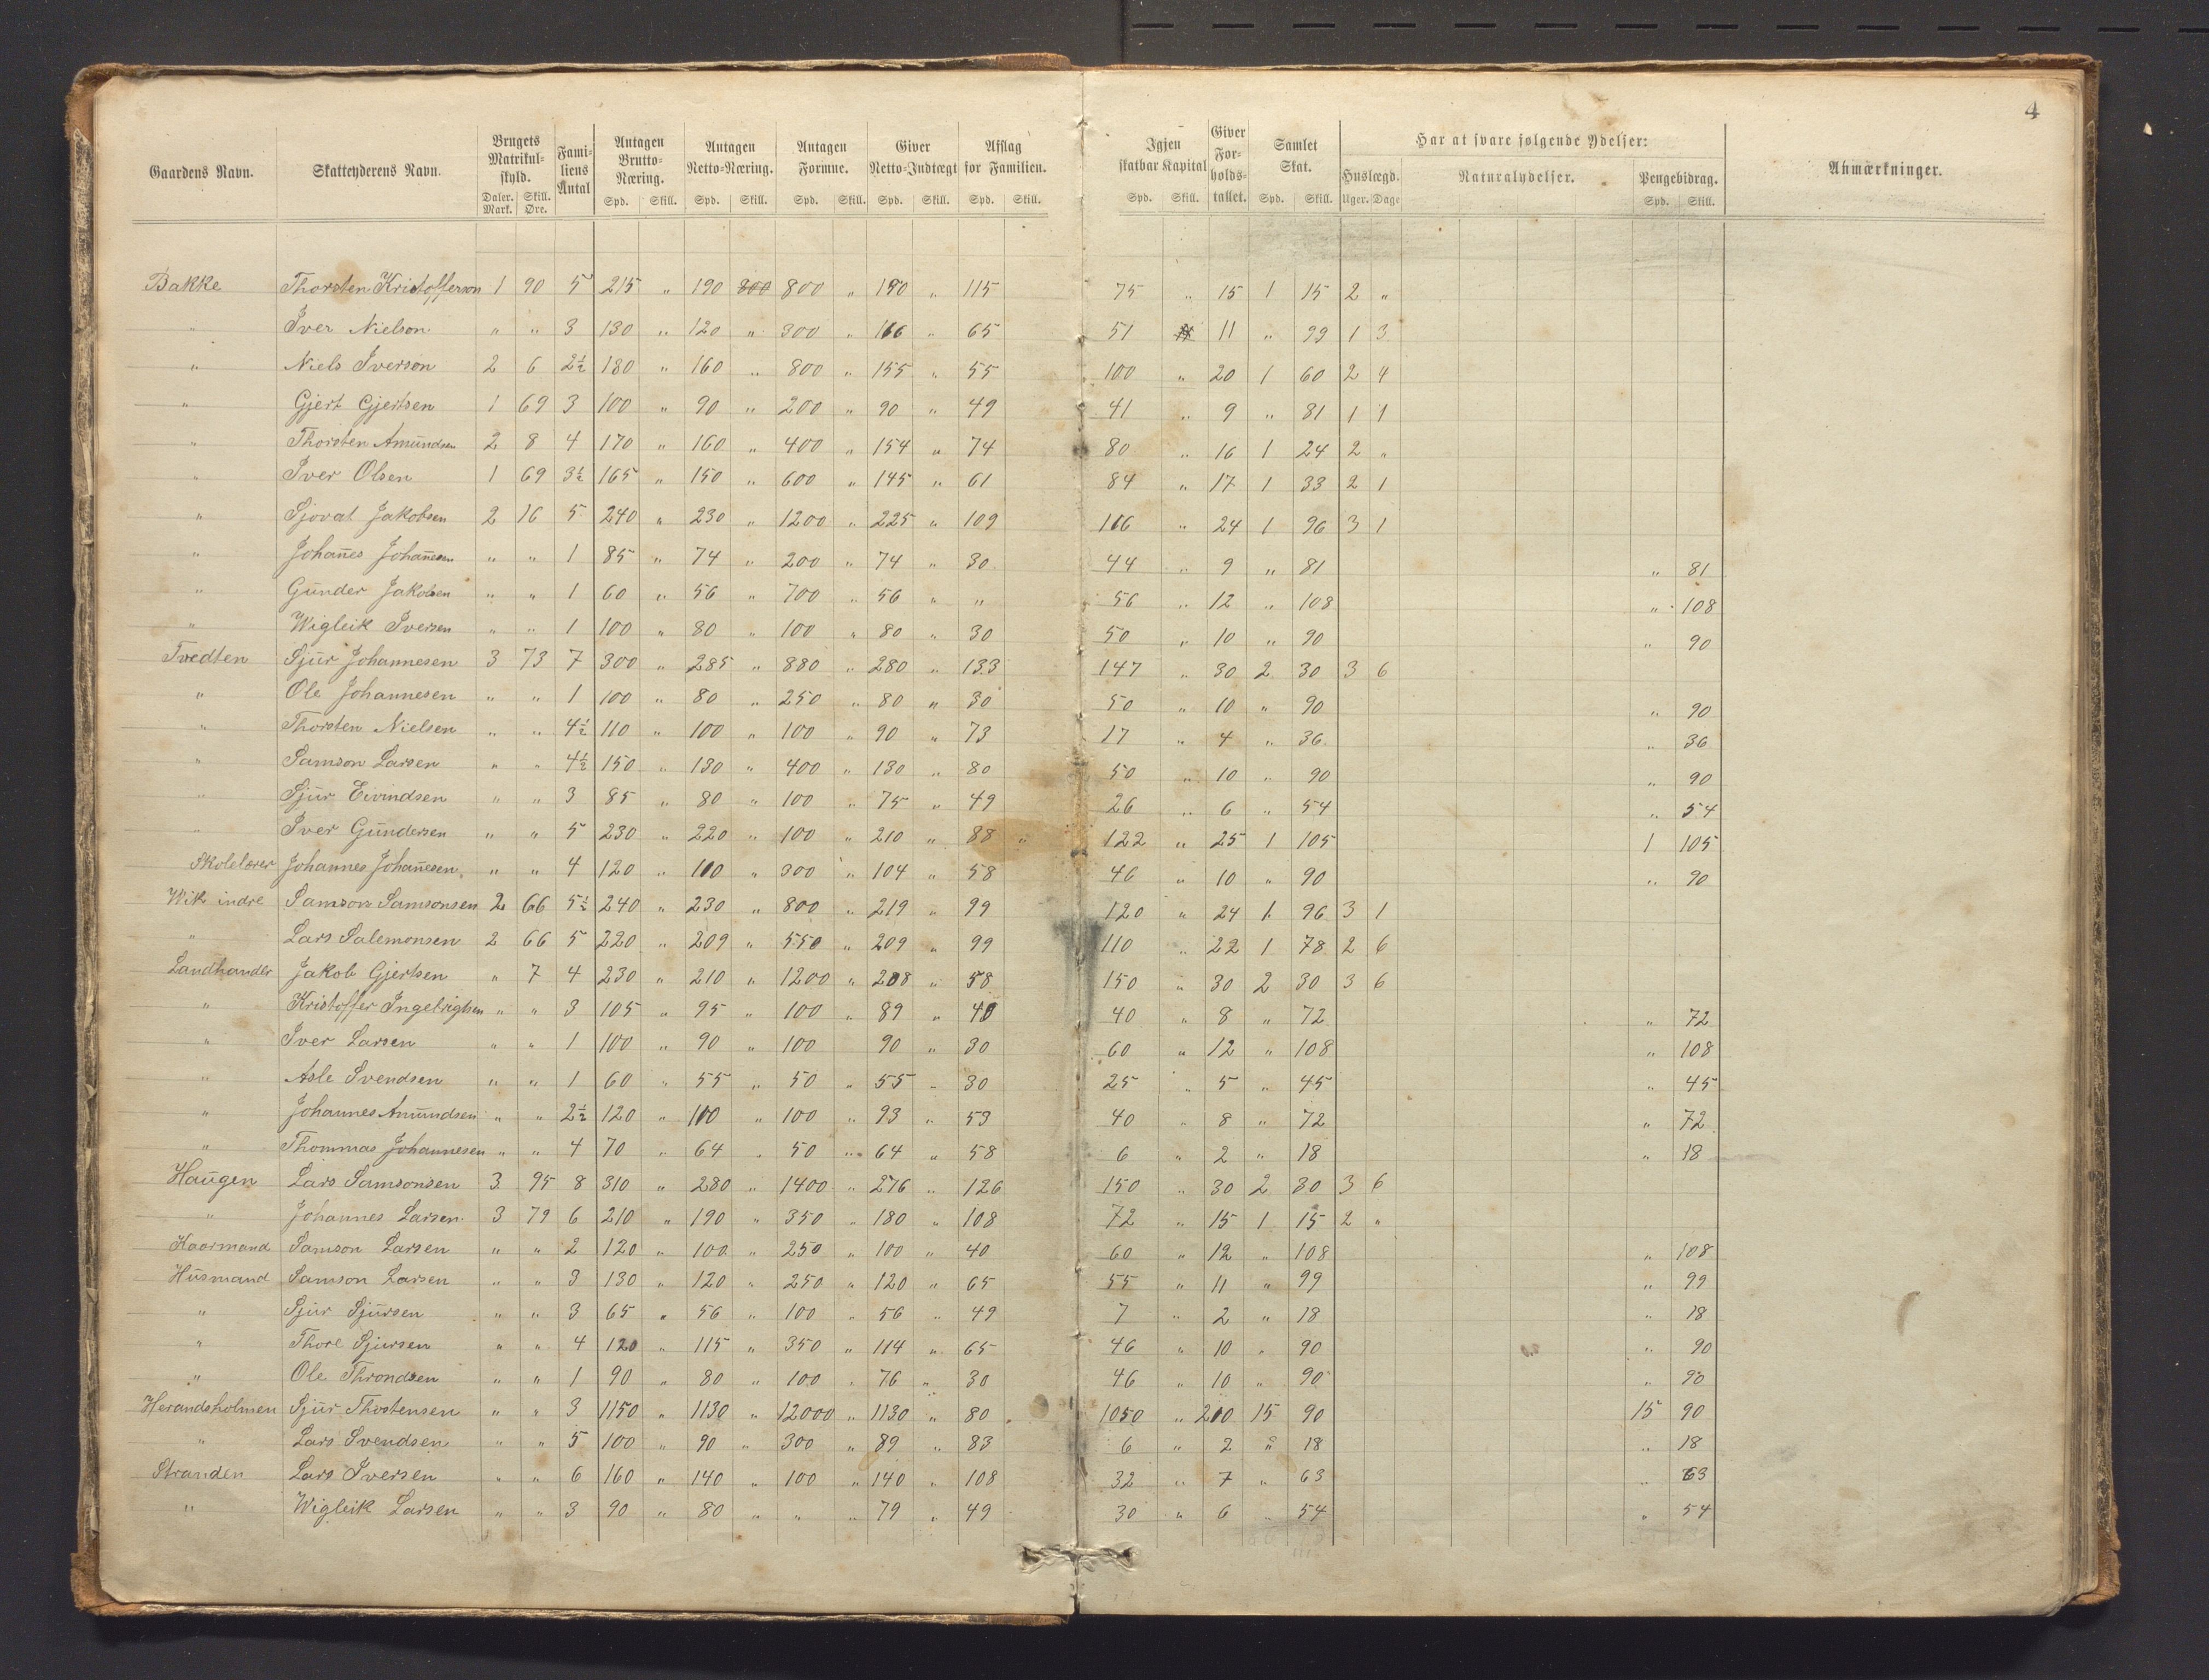 4
Gaardens Navn. Skatteyderens Navn. Brugets Matrikulskyld. Daler. Mark. Skill. Øre. Familiens Antal Antagen Brutto-Næring. Spd. Skill. Antagen Netto-Næring. Spd. Skill. Antagen Formue. Spd. Skill. Giver Netto-Indtægt Spd. Skill. Afslag for Familien. Spd. Skill. Igjen skatbar Kapital Spd. Skill. Giver Forholdstallet. Samlet Skat. Spd. Skill. Har at svare følgende Ydelser: Huslægd. Uger. Dage Naturalydelser. Pengebidrag. Spd. Skill. Anmærkninger.
Bakke Thorsten Kristofferson 1 90 5 215 " 190 300 800 " 190 " 115 75 " 15 1 15 2 "
" Iver Nielson " " 3 130 " 120 " 300 " 116 " 65 51 11 " 99 1 3
" Niels Iverson 2 6 2½ 180 " 160 " 800 " 155 " 55 100 " 20 1 60 2 4
" Gjert Gjertsen 1 69 3 100 " 90 " 200 " 90 " 49 41 " 9 " 81 1 1
" Thorsten Amundsen 2 8 4 170 " 160 " 400 " 154 " 74 80 " 16 1 24 2 "
" Iver Olsen 1 69 3½ 165 " 150 " 600 " 145 " 61 84 " 17 1 33 2 1
" Sjovat Jakobsen 2 16 5 240 " 230 " 1200 " 225 " 109 116 " 24 1 96 3 1
" Johan̄es Johan̄esen " " 1 85 " 74 " 200 " 74 " 30 44 " 9 " 81 " 81
" Gunder Jakobsen " " 1 60 " 56 " 700 " 56 " " 56 " 12 " 108 " 108
" Wigleik Iversen " " 1 100 " 80 " 100 " 80 " 30 50 " 10 " 90 " 90
Tvedten Sjur Johannesen 3 73 7 300 " 285 " 880 " 280 " 133 147 " 30 2 30 3 6
" Ole Johannesen " " 1 100 " 80 " 250 " 80 " 30 50 " 10 " 90 " 90
" Thorsten Nielsen " " 4½ 110 " 100 " 100 " 90 " 73 17 " 4 " 36 " 36
" Samson Larsen " " 4½ 150 " 130 " 400 " 130 " 80 50 " 10 " 90 " 90
" Sjur Eivindsen " " 3 85 " 80 " 100 " 75 " 49 26 " 6 " 54 " 54
" Iver Gundersen " " 5 230 " 220 " 100 " 210 " 88 " 122 " 25 1 105 1 105
Skolelærer Johannes Johan̄esen " " 4 120 " 110 " 300 " 104 " 58 46 " 10 " 90 " 90
Wik indre Samson Samsonsen 2 66 5½ 240 " 230 " 800 " 219 " 99 120 " 24 1 96 3 1
" Lars Salemonsen 2 66 5 220 " 209 " 550 " 209 " 99 110 " 22 1 78 2 6
Landhandler Jakob Gjertsen " 7 4 230 " 210 " 1200 " 208 " 58 150 " 30 2 30 3 6
" Kristoffer Ingebrigtsen " " 3 105 " 95 " 100 " 89 " 49 40 " 8 " 72 " 72
" Iver Larsen " " 1 100 " 90 " 100 90 " 30 60 " 12 " 108 " 108
" Asle Svendsen " " 1 60 " 55 " 50 " 55 " 30 25 " 5 " 45 " 45
" Johannes Amundsen " " 2½ 120 " 100 " 100 " 93 " 53 40 " 8 " 72 " 72
" Thommas Johannesen " " 4 70 " 64 " 50 " 64 " 58 6 " 2 " 18 " 18
Haugen Lars Samsonsen 3 95 8 310 " 280 " 1400 " 276 " 126 150 " 30 2 30 3 6
" Johannes Larsen 3 79 6 210 " 190 " 350 " 180 " 108 72 " 15 1 15 2 "
Kaarmand Samson Larsen " " 2 120 " 100 " 250 " 100 " 40 60 " 12 " 108 " 108
Husmand Samson Larsen " " 3 130 " 120 " 250 " 120 " 65 55 " 11 " 99 " 99
" Sjur Sjursen " " 3 65 " 56 " 100 " 56 " 49 7 " 2 " 18 " 18
" Thore Sjursen " " 4 120 " 115 " 350 " 114 " 65 46 " 10 " 90 " 90
" Ole Throndsen " " 1 90 " 80 " 100 " 76 " 30 46 " 10 " 90 " 90
Herandsholmen Sjur Thostensen " " 3 1150 " 1130 " 12000 " 1130 " 80 " 1050 " 210 15 90 15 90
" Lars Svendsen " " 5 100 " 90 " 300 " 89 " 83 6 " 2 " 18 " 18
Stranden Lars Iversen " " 6 160 " 140 " 100 " 140 " 108 32 " 7 " 63 " 63
" Wigleik Larsen " " 3 90 " 80 " " " 79 " 49 30 " 6 " 54 " 54